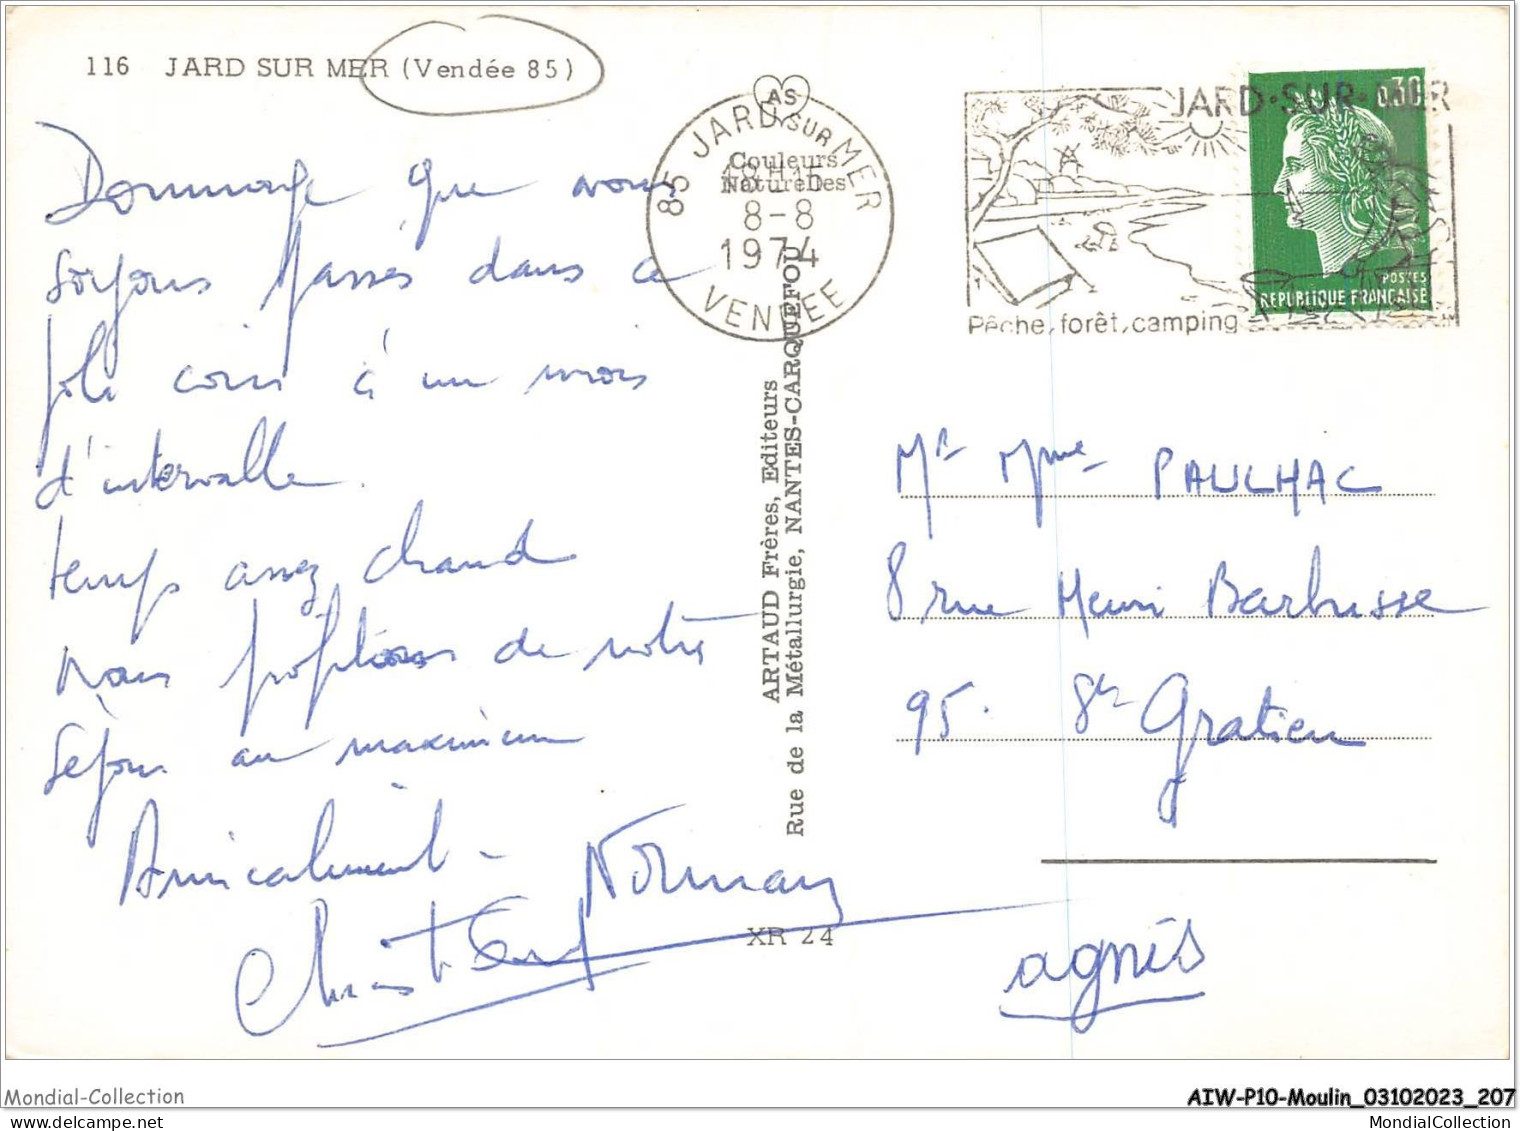 116 JARD SUR MER (Vendée 85)
Dommage que nous
soyons passés dans ce
joli coin à un mois
d'intervalle.
temps assez chaud
nous profitons de notre
séjour au maximum
Amicalement -
Norman
Christian
AS
Couleurs
Naturelles
85 JARD SUR MER
18H15
8-8
1974
VENDEE
ARTAUD Frères, Editeurs
Rue de la Métallurgie, NANTES-CARQUEFOU
XR 24
JARD·SUR·MER
Pêche, forêt, camping
0,30
POSTES
REPUBLIQUE FRANÇAISE
Mr Mme PAULHAC
8 rue Henri Barbusse
95. St Gratien
agnès
Mondial-Collection
AIW-P10-Moulin_03102023_207
MondialCollection